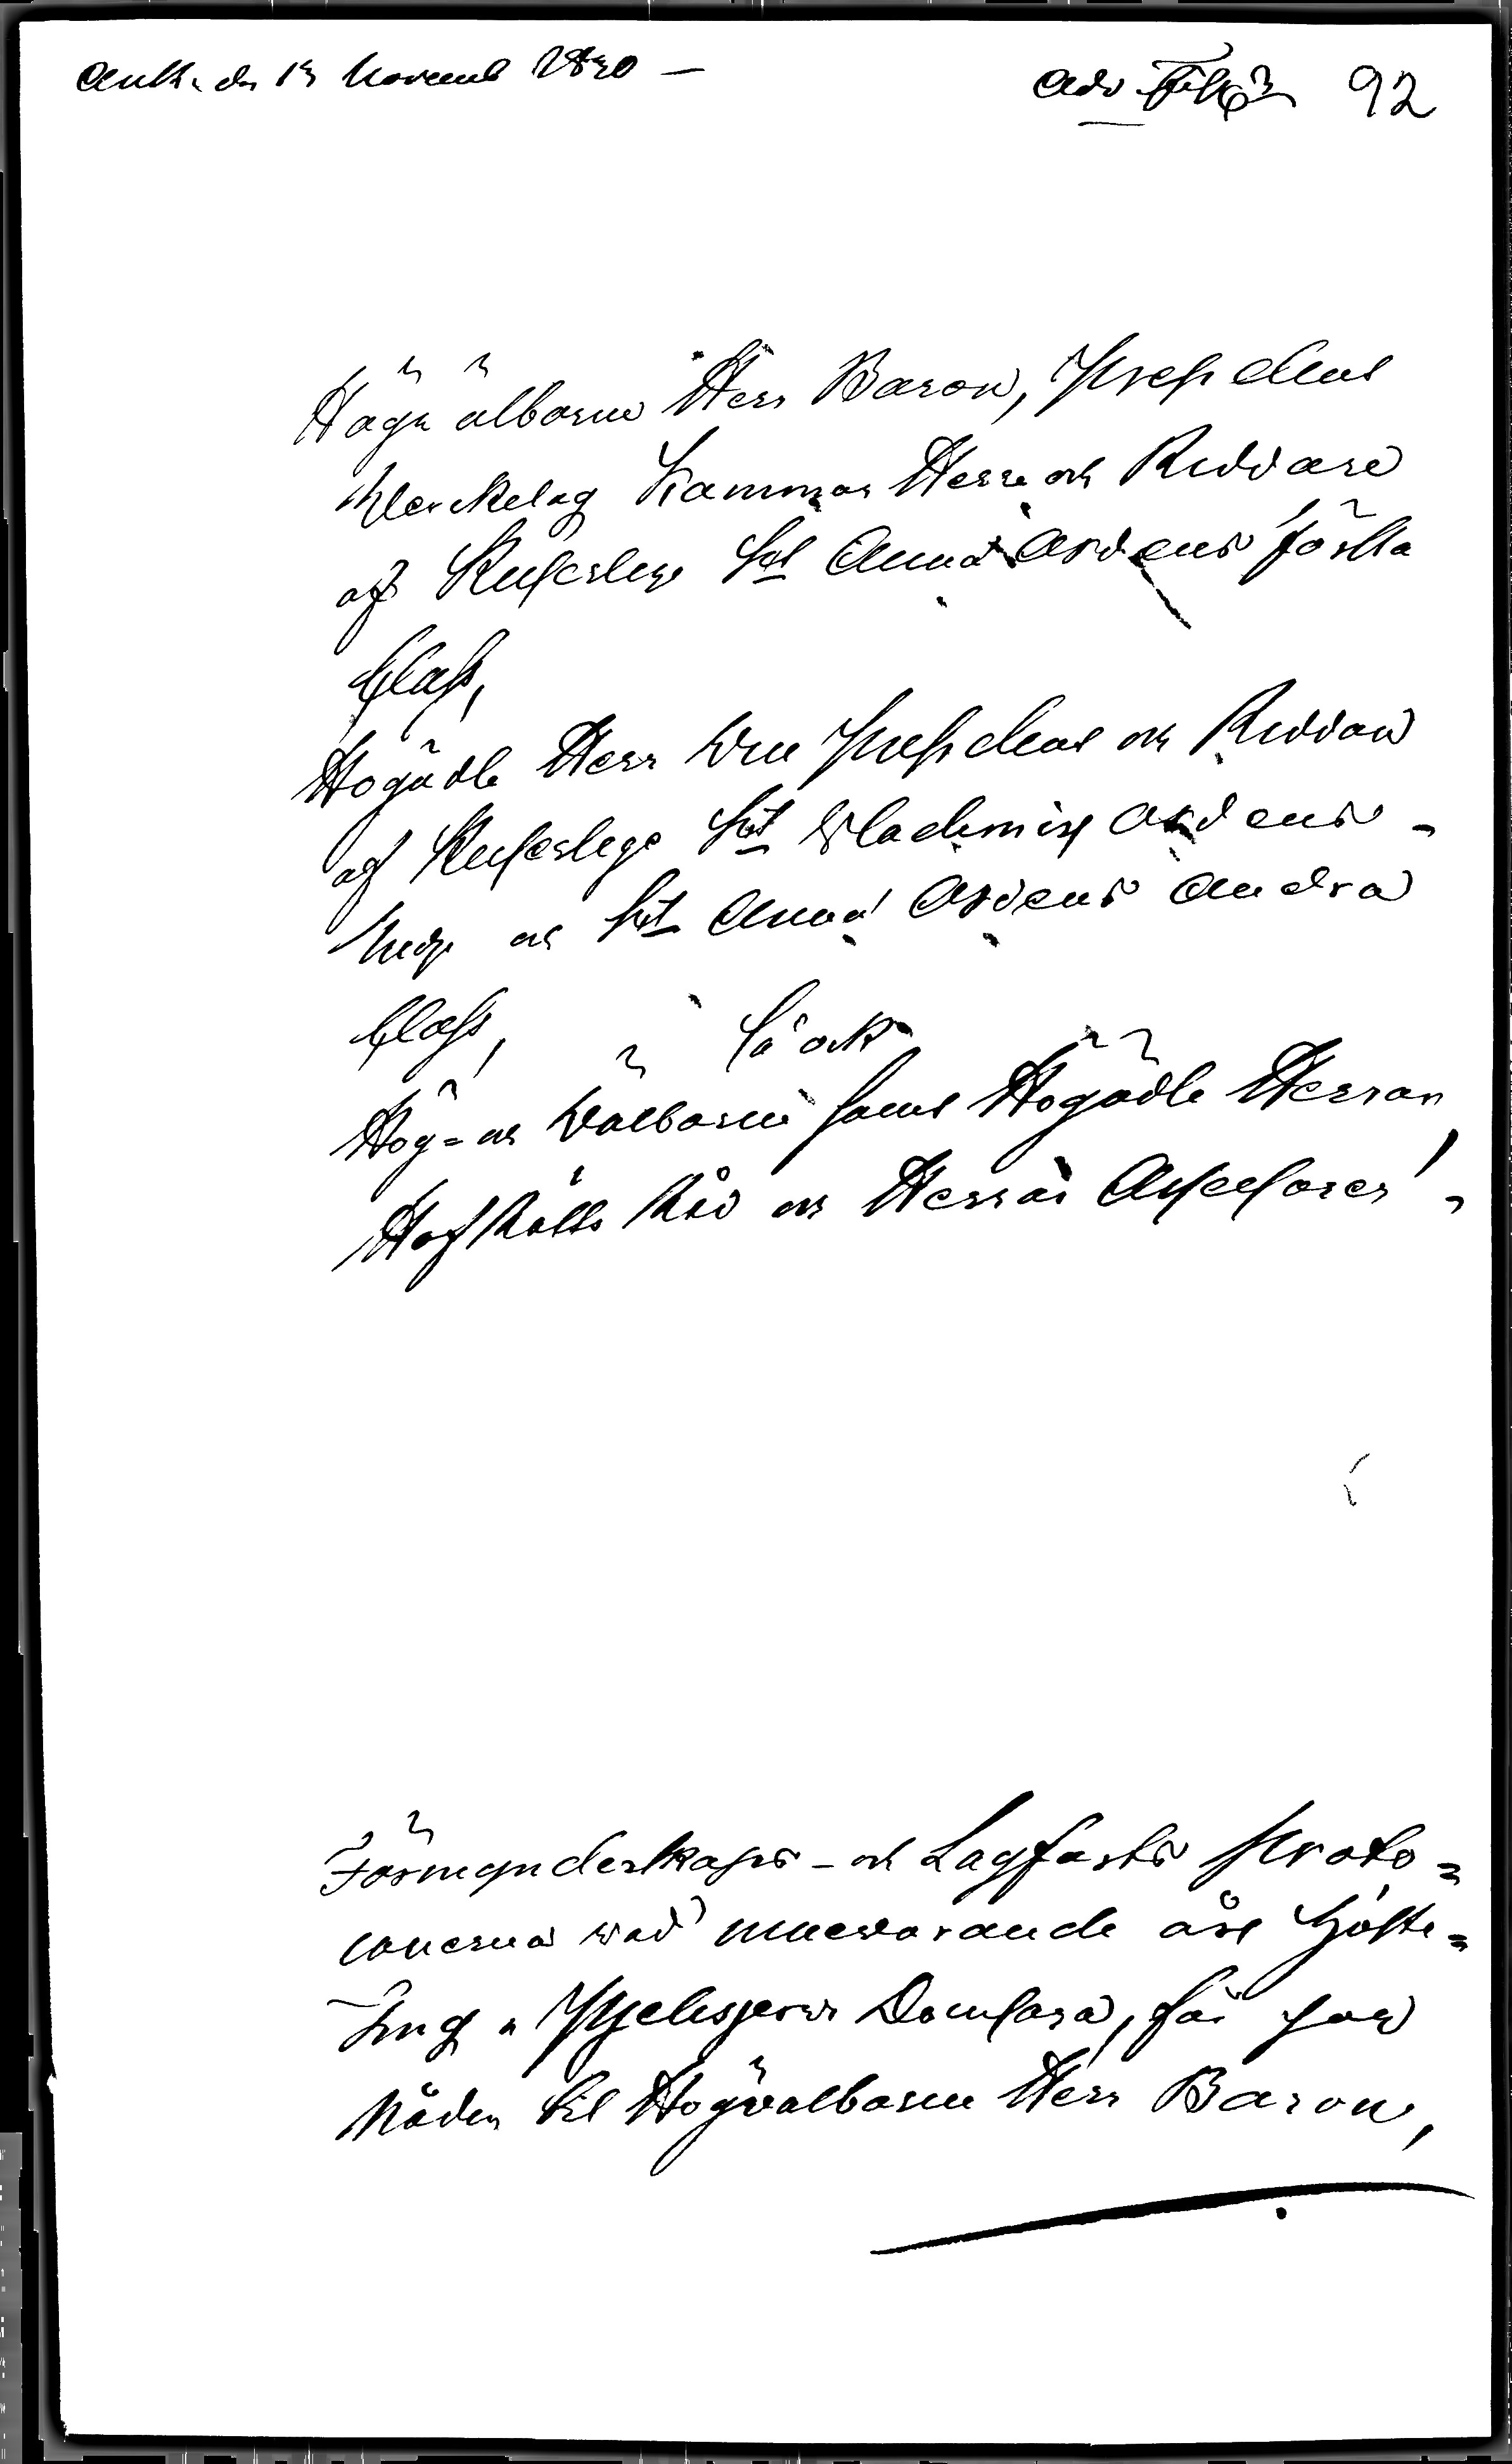 Ank. den 13 Novemb 1830 —
Adv 92
Högvälborne Herr Baron, President
Werckelig Kammar Herre och Riddare
af Kejserlige S:t Annæ Ordens första
Class,
Högädle Herr Vice President och Riddare
af Kejserlige S:t Wladimirs Ordens -
tredje och S:t Annæ Ordens Andra
Class,
Så ock
Hög- och Wälborne samt Högädle Herrar
HofRätts Råd och Herrar Assessorer,
Förmynderskaps- och Lagfarts Proto=
collerna wid innewarande års Höste=
Ting i Domsaga, får jag
Nåden til Högwälborne Herr Baron,